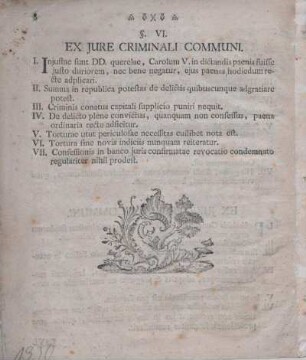 §. VI.
EX JURE CRIMINALI COMMUNI.
I. Injustae sunt DD. querelae, Carolum V. in dictandis paenis fuisse
justo duriorem, nec bene negatur, ejus paenas hodiedum re-
cte adplicari.
II. Summa in republica potestas de delictis quibuscunque adgratiare
potest.
III. Criminis conatus capitali supplicio puniri nequit.
IV. De delicto plene convictus, quanquam non confessus, paena
ordinaria recte adficitur.
V. Torturae utut periculosae necessitas cuilibet nota est.
VI. Tortura sine novis indiciis nunquam reiteratur.
VII. Confessionis in banco juris confirmatae revocatio condemnato
regulariter nihil prodest.